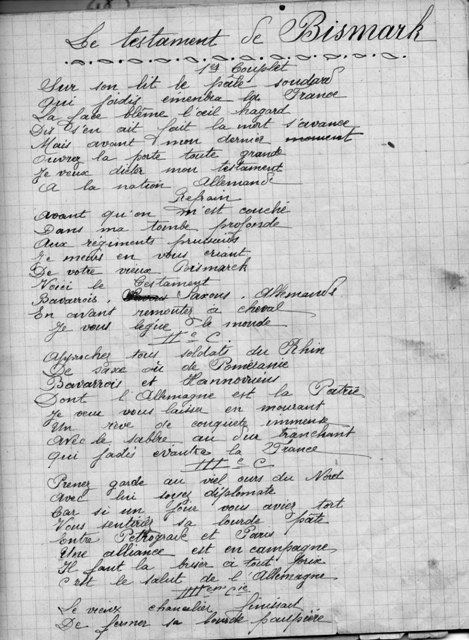 Le testament de Bismark
1er Couplet
Sur son lit le pâle soudard
Qui jadis émenbra la France
La face blême l'œil hagard
Dis s'en ait fait la mort s'avance
Mais avant mon dernier moment
Ouvrez la porte toute grande
Je veux dicter mon testament
A la nation Allemande
Refrain
Avant qu'on m'est couché
Dans ma tombe profonde
Aux régiments prussiens
Je meurs en vous criant
De votre vieux Bismarck
Voici le testament
Bavarrois, Saxons, Allemands
En avant remonter à cheval
Je vous lègue le monde
II e C
Approcher tous soldats du Rhin
De saxe ou de Poméranie
Bavarrois et Hannovriens
Dont l'Allemagne est la Patrie
Je veux vous laisser en mourant
Un rêve de conquête immense
Avec le sabre au dur tranchant
qui jadis éventre la France
III e C
Prener garde au viel ours du Nord
Avec lui soyez diplomate
Car si un jour vous avier tort
Vous sentirier sa lourde patte
Entre Pétrograde et Paris
Une alliance est en campagne
Il faut la briser a tout prix
c'est le salut de l'Allemagne
Le vieux chancelier finissait
De fermer sa lourde paupière